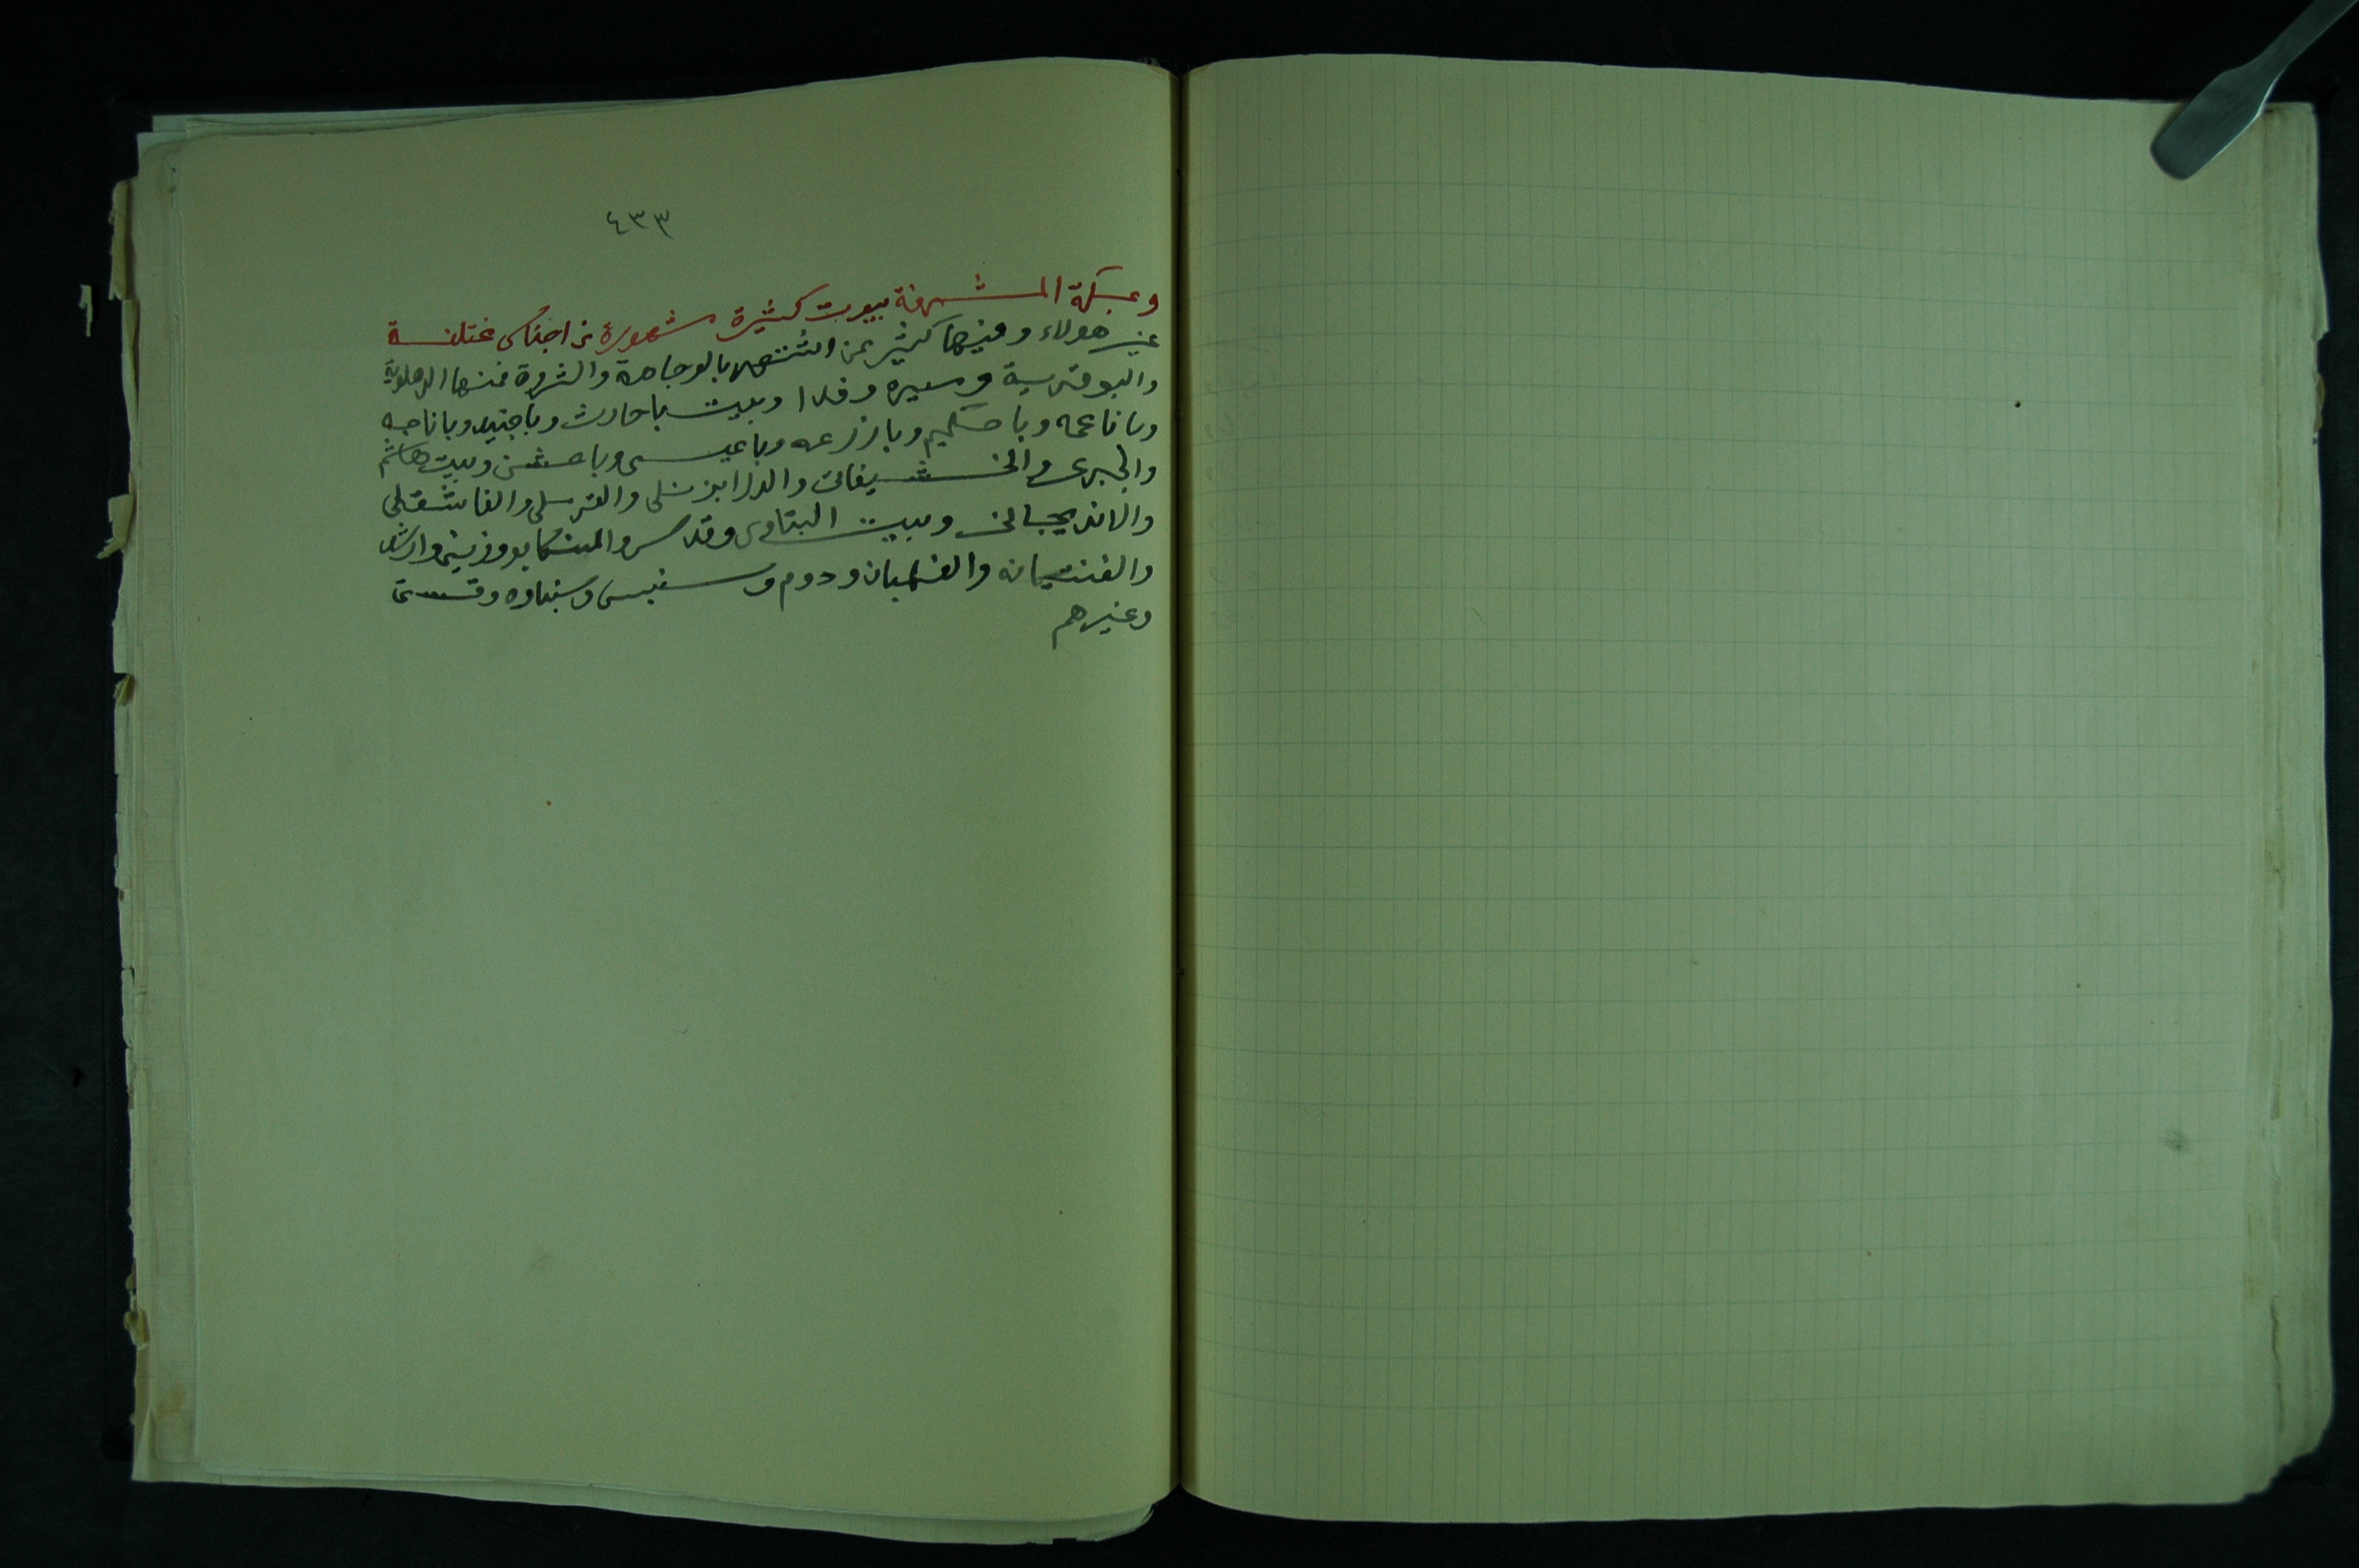 ٤٣٣
وبمكة المشرفة بيوت كثيرة مشهورة من اجناس مختلفة
غير هولاء وفيها كثير ممن اشتهر بالوجاهة والثروة فمنها الدهلوية
والبوقرية وسيره وفدا وبيت باحارث وباجنيد وباناجه
وباناعمه وباحكيم وبازرعه وباعيسى وباعشن وبيت هاشم
والجبرى والخشيفاتى والدرابزنلى والقرملى والفاشقلى
والاندیجانى وبيت البتاوى وقدس والمنكابو وزينى وارشد
والفنتيانه والفلمبان ودوم وسنبس وسنباوه وقستى
وغيرهم